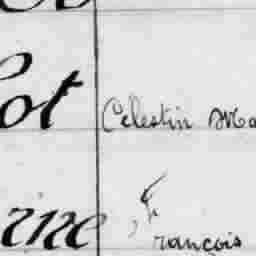 ot Celestin Ma
ine François